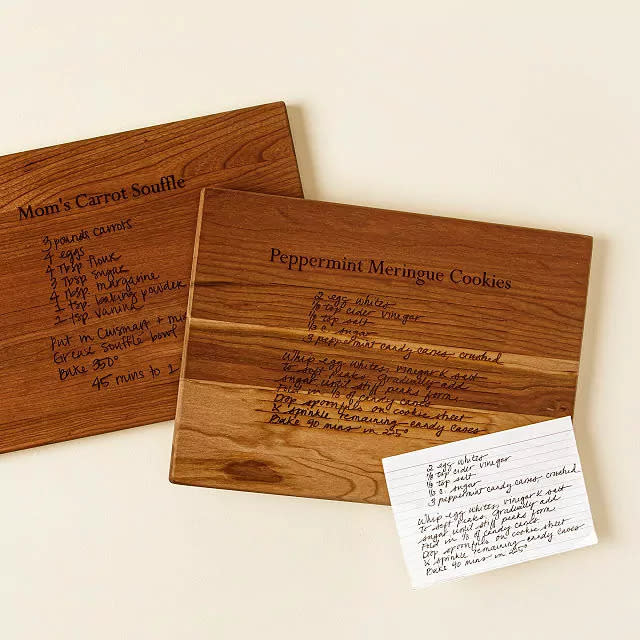 Mom's Carrot Souffle
3 pounds carrots
4 eggs
4 Tbsp flour
3 Tbsp sugar
4 Tbsp margarine
1 tsp. baking powder
1 tsp vanilla
Put in Cuisinart + mix
Grease souffle bowl
Bake 350°
45 mins to 1
Peppermint Meringue Cookies
2 egg whites
⅛ tsp cider vinegar
⅛ tsp salt
½ c. sugar
3 peppermint candy canes, crushed
Whip egg whites, vinegar & salt
to soft peaks. Gradually add
sugar until stiff peaks form.
Fold in ⅓ of candy canes
Drop spoonfuls on cookie street
& sprinkle remaining candy canes
Bake 90 mins in 225°
2 egg whites
⅛ tsp cider vinegar
⅛ tsp salt
½ c. sugar
3 peppermint candy canes, crushed
Whip egg whites, vinegar & salt
to soft peaks. Gradually add
sugar until stiff peaks form
Fold in ⅓ of candy canes
Drop spoonfuls on cookie street
& sprinkle remaining candy canes
Bake 90 mins in 225°